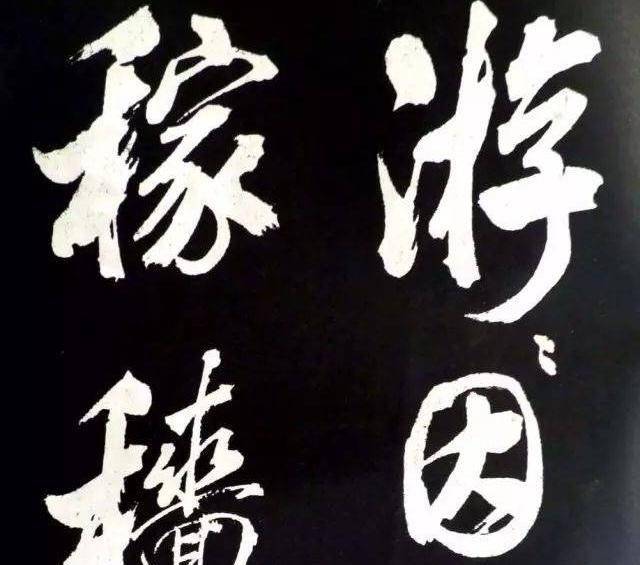 游〻因
稼穡